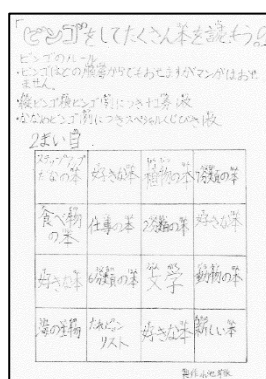 「ビンゴをしてたくさん本を読もう。」
ビンゴのルール
・ビンゴはどの順番からでもおせますがマンガはおせ
ません。
・縦ビンゴ横ビンゴ1列につき
・ななめビンゴ1列につきスペシャルくじひき1枚
2まい目
ステップアップ
たなの本 好きな本 植物の本 7分類の本
食べ物
の本 仕事の本 2分類の本 好きな本
好きな本 6分類の本 文学 動物の本
海の生物 リスト 好きな本 新しい本